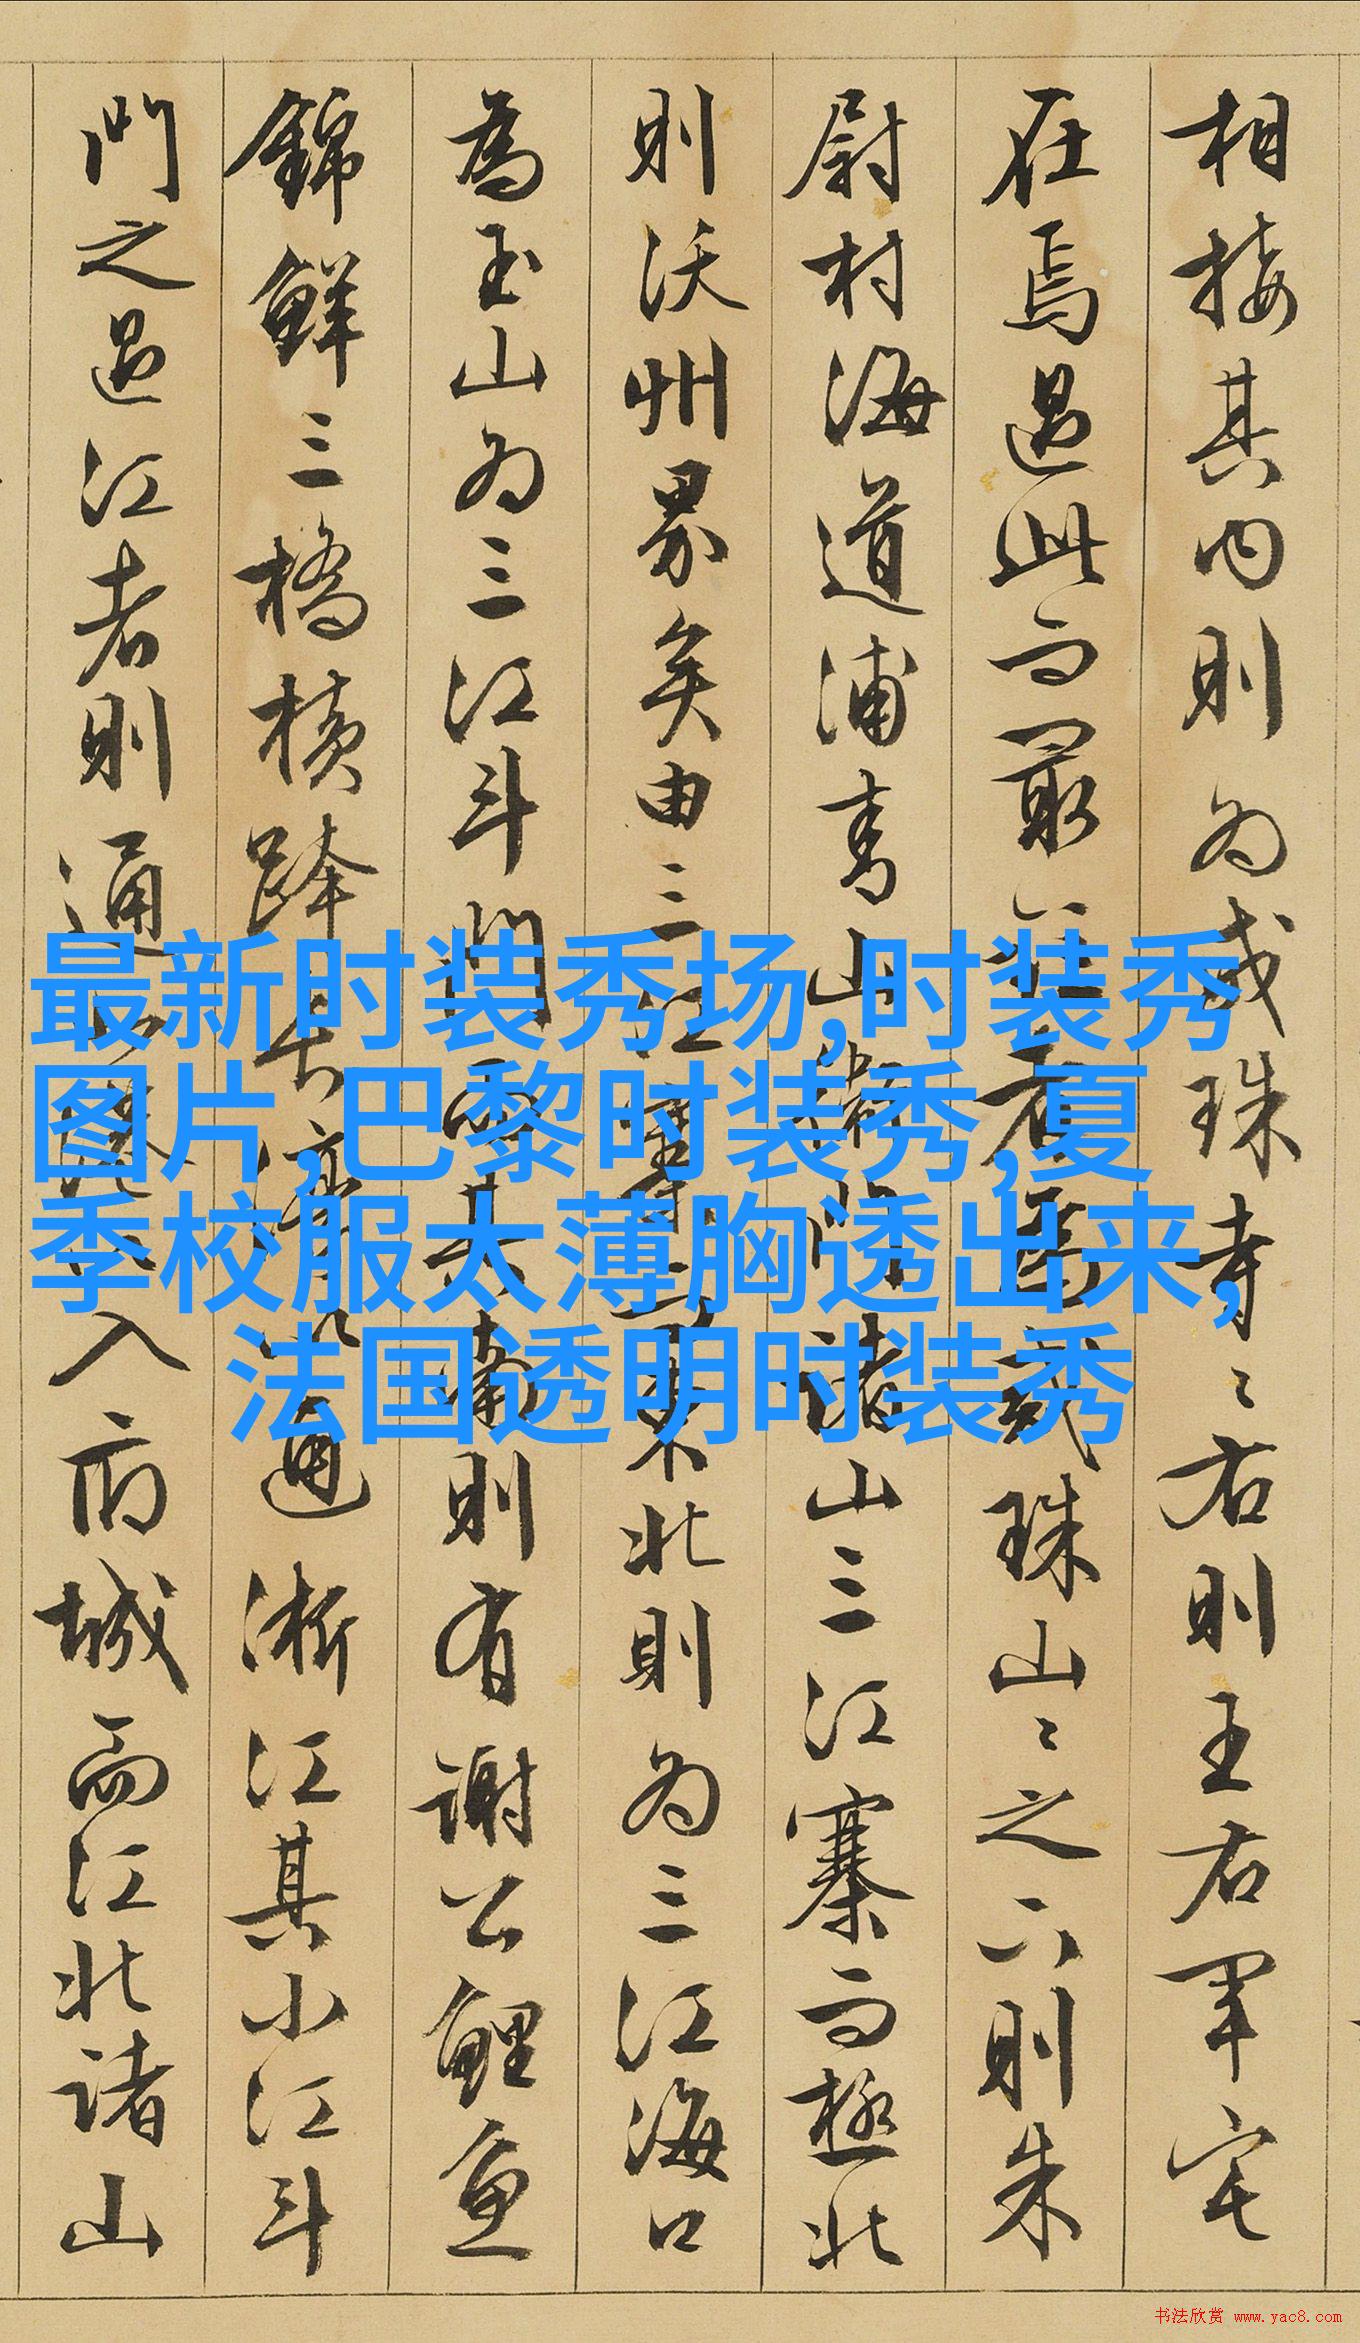 相接其内則为戒珠寺〻右則王右軍宅
在焉過此而最
戒珠山〻之下則朱
尉村海道浦
山三江寨而極北
則沃州界矣由三江
東北則为三江海口
為玉山为三江斗門
其南則有謝公鯉魚
錦鱗三橋橫跨
通浙江其小江斗
門之過江者則通
入府城而江北諸山
最新时装秀场,时装秀
图片,巴黎时装秀,夏
季校服太薄胸透出来,
法国透明时装秀
书法欣赏 www.yac8.com